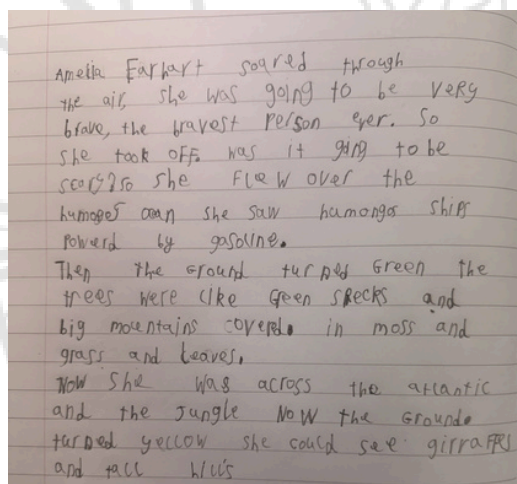 Amelia Earhart soared through
the air, she was going to be very
brave, the bravest person ever. So
she took off. was it going to be
scary? so she flew over the
humoges ocean she saw humongos ships
powerd by gasoline.
Then the Ground turned Green the
trees were like Green specks and
big mountains covered. in moss and
grass and leaves.
Now she was across the atlantic
and the Jungle Now the Ground.
turned yellow she could see girraffes
and tall hills